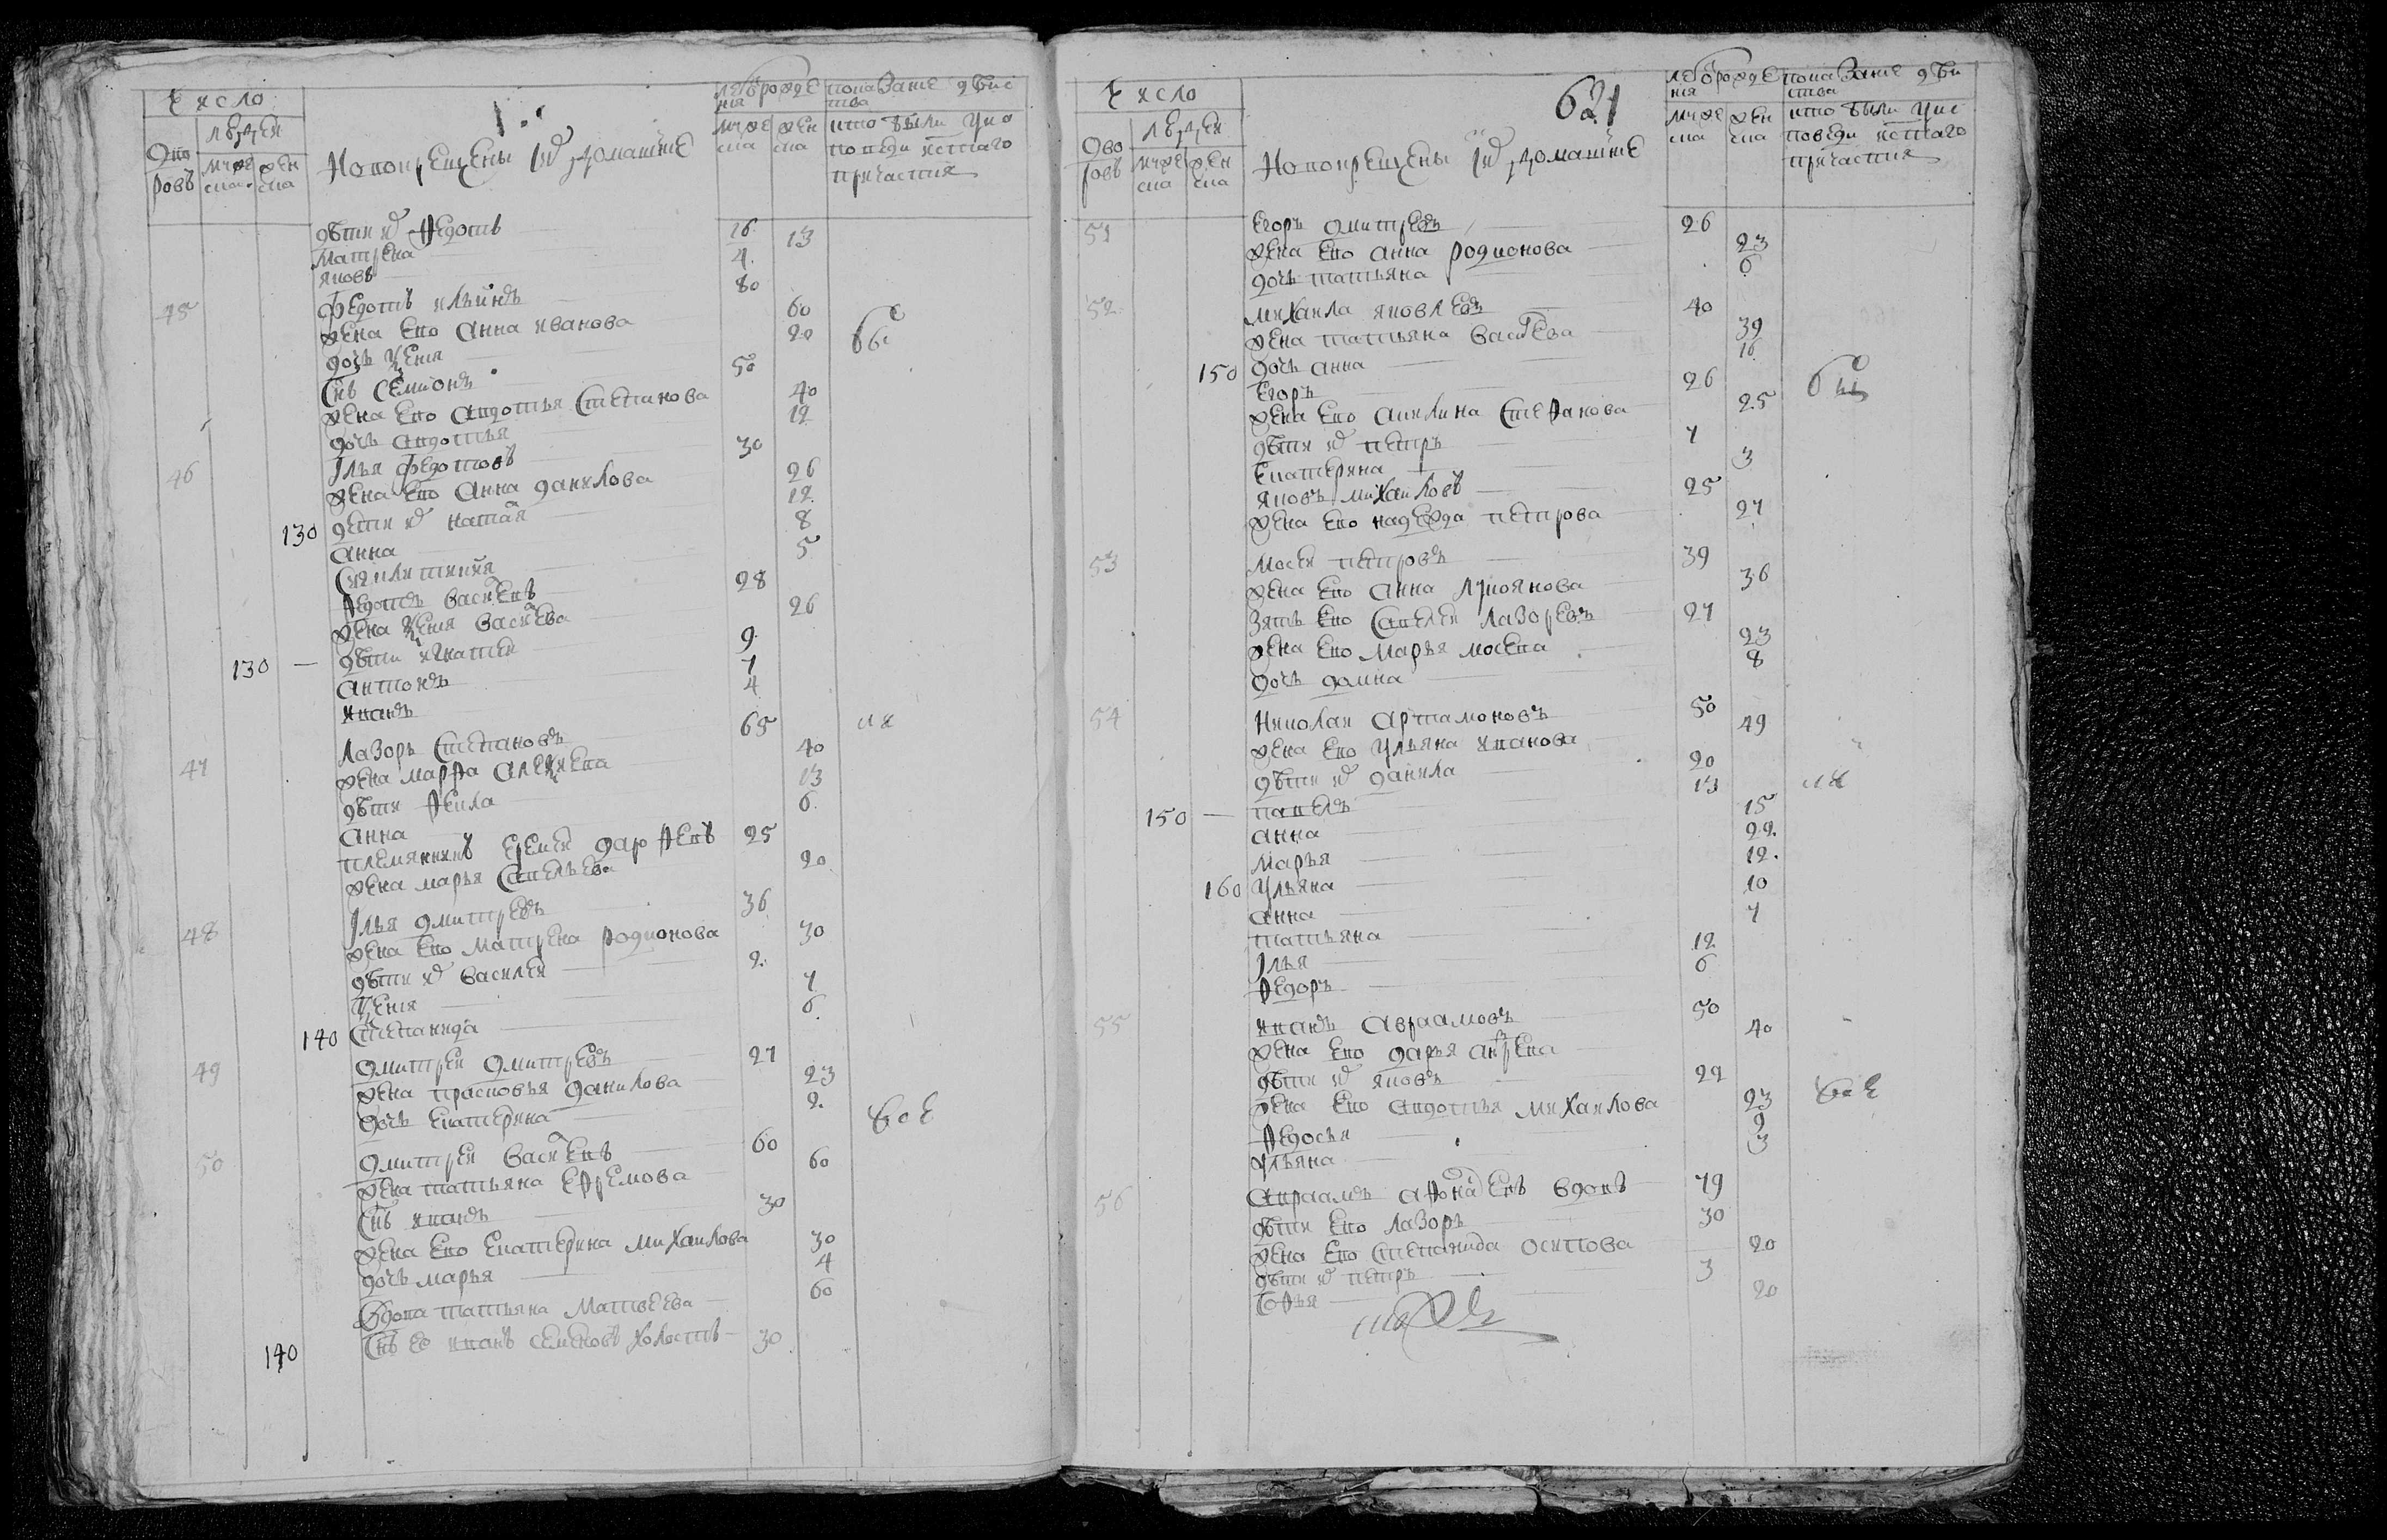 Число
Дворовъ
людей
мужеска
женска
Новокрещены и ихъ домашние
лета от рожде
ния
мужеска
женска
показание действ
ства
кто были у ис
поведи и стаго
причастия
дѣти их Федотъ 16
Матрена 13
Яковъ 4
45 Федотъ Ильинъ 80
жена ево Анна Иванова 60
дочь 20
снъ Семионъ 50
жена ево Авдотья Степанова 40
дочь Авдотья 12
46 Илья Федотовъ 30
жена ево Анна Данилова 26
130 дети их 12
Анна 8
5
Федотъ Василевъ 28
жена Василева 26
130 дѣти Игнатей 9
Антонъ 7
Иванъ 4
47 Лазорь Степановъ 65
жена Марфа Алексеева 40
дѣти Фекла 13
Анна 6
племянникъ Еремей 25
жена Марья Савельева 20
48 Илья Дмитревъ 36
жена ево Матрена Родионова 30
дѣти их Василей 2
7
140 Степанида 6
49 Дмитрей Дмитревъ 27
жена Прасковья Данилова 23
дочь Екатерина 2
все
50 Дмитрей Василевъ 60
жена Татьяна Ефремова 60
снъ Иванъ 30
жена ево Екатерина Михаилова 30
дочь Марья 4
вдова Татьяна Матвеева 60
140 снъ ее Иванъ Семеновъ холостъ 30
621
Число
Дворовъ
людей
мужеска
женска
Новокрещены и ихъ домашние
лета от рожде
ния
мужеска
женска
показание действ
ства
кто были у ис
поведи и стаго
причастия
51 Егоръ Дмитревъ 26
жена ево Анна Родионова 23
дочь Татьяна 6
52 Михаила Яковлевъ 40
жена Татьяна Василева 39
150 дочь Анна 16
Егоръ 26
жена ево Акилина Стефанова 25
дѣти их Петръ 7
Екатерина 3
Яковъ Михаиловъ 25
жена ево Надежда Петрова 27
53 Мосей Петровъ 39
жена ево Анна Лукоянова 36
зять ево Савелей Лазоревъ 27
жена ево Марья Мосева 23
дочь Домна 8
54 Николай Артамоновъ 50
жена ево Ульяна Иванова 49
дѣти их Данила 20
150 Павелъ 13
Анна 15
Марья 22
160 Ульяна 12
Анна 10
Татьяна 7
Илья 12
Федоръ 6
55 Иванъ Авраамовъ 50
жена ево Дарья Андрева 40
дѣти их Яковъ 22
жена ево Авдотья Михаилова 23
все
Федосья 9
Ульяна 3
56 Авраамъ Афонасевъ вдовъ 79
дѣти ево Лазорь 30
жена ево Степанида Осипова 20
дѣти их Петръ 3
Софья 20